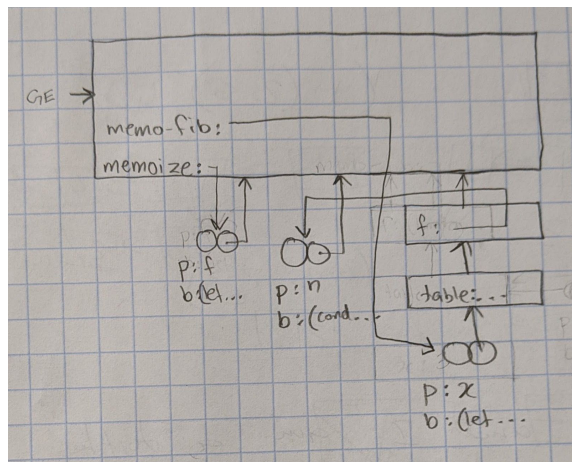 GE
memo-fib:
memoize:
f:
p: f
b:(let...
p: n
b:(cond...
table:...
p: x
b:(let...